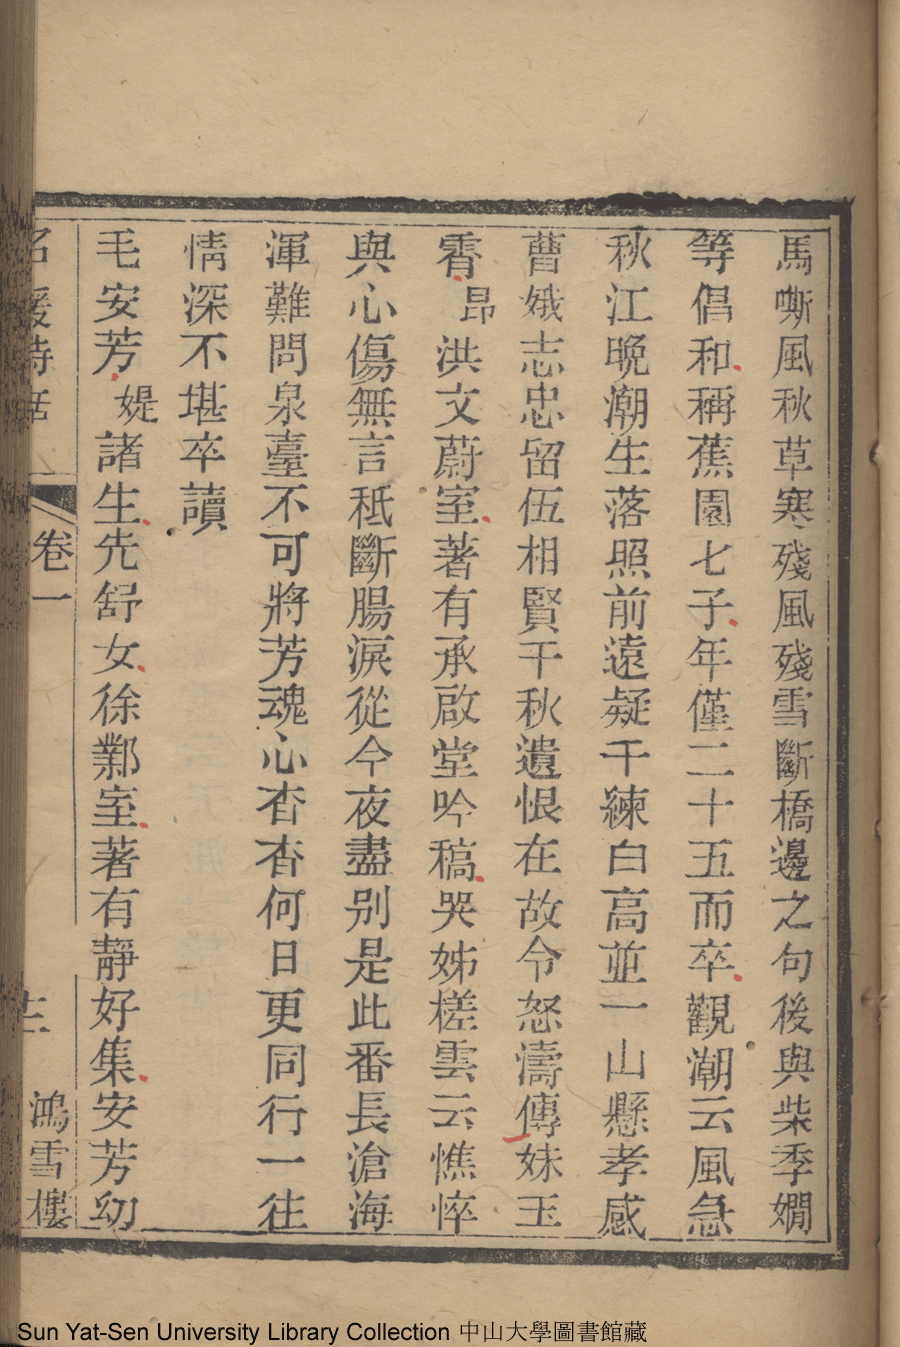 馬嘶風秋草寒殘風殘雪斷橋邊之句後與柴季嫺
等倡和稱蕉園七子年僅二十五而卒觀潮云風急
秋江晚潮生落照前遠疑千練白高並一山懸孝感
曹娥志忠留伍相賢千秋遺恨在故令怒濤傳妹玉
霄昂洪文蔚室著有承啟堂吟稿哭姊槎雲云憔悴
與心傷無言秪斷腸淚從今夜盡別是此番長滄海
渾難問泉臺不可將芳魂心杳杳何日更同行一往
情深不堪卒讀
毛安芳媞諸生先舒女徐鄴室著有靜好集安芳幼
名媛詩話 卷一 十二 鴻雪樓
Sun Yat-Sen University Library Collection 中山大學圖書館藏